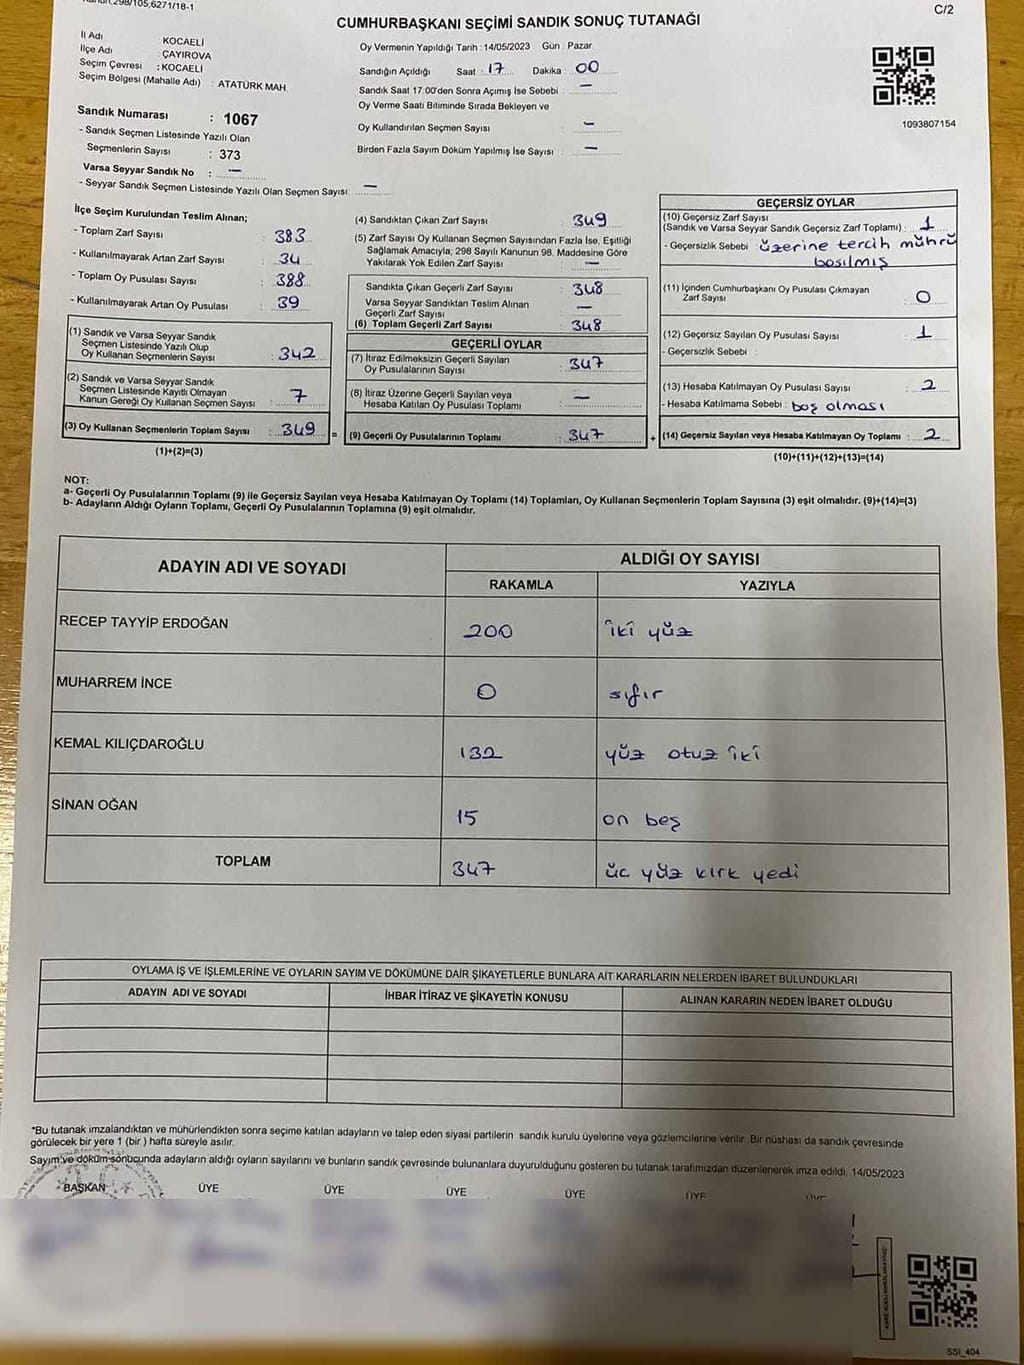 Kanun,298/105,6271/18-1
C/2
CUMHURBAŞKANI SEÇİMİ SANDIK SONUÇ TUTANAĞI
İl Adı KOCAELİ
İlçe Adı ÇAYIROVA
Seçim Çevresi : KOCAELİ
Seçim Bölgesi (Mahalle Adı) : ATATÜRK MAH.
Sandık Numarası : 1067
- Sandık Seçmen Listesinde Yazılı Olan
Seçmenlerin Sayısı : 373
Varsa Seyyar Sandık No : —
- Seyyar Sandık Seçmen Listesinde Yazılı Olan Seçmen Sayısı: —
Oy Vermenin Yapıldığı Tarih :14/05/2023 Gün : Pazar
Sandığın Açıldığı Saat : 17 Dakika : 00
Sandık Saat 17:00'den Sonra Açımış İse Sebebi : —
Oy Verme Saati Bitiminde Sırada Bekleyen ve
Oy Kullandırılan Seçmen Sayısı : —
Birden Fazla Sayım Döküm Yapılmış İse Sayısı : —
1093807154
İlçe Seçim Kurulundan Teslim Alınan;
- Toplam Zarf Sayısı : 383
- Kullanılmayarak Artan Zarf Sayısı : 34
- Toplam Oy Pusulası Sayısı : 388
- Kullanılmayarak Artan Oy Pusulası : 39
(1) Sandık ve Varsa Seyyar Sandık
Seçmen Listesinde Yazılı Olup
Oy Kullanan Seçmenlerin Sayısı : 342
(2) Sandık ve Varsa Seyyar Sandık
Seçmen Listesinde Kayıtlı Olmayan
Kanun Gereği Oy Kullanan Seçmen Sayısı : 7
(3) Oy Kullanan Seçmenlerin Toplam Sayısı : 349
(1)+(2)=(3)
(4) Sandıktan Çıkan Zarf Sayısı : 349
(5) Zarf Sayısı Oy Kullanan Seçmen Sayısından Fazla İse, Eşitliği
Sağlamak Amacıyla, 298 Sayılı Kanunun 98. Maddesine Göre
Yakılarak Yok Edilen Zarf Sayısı : —
Sandıkta Çıkan Geçerli Zarf Sayısı : 348
Varsa Seyyar Sandıktan Teslim Alınan
Geçerli Zarf Sayısı : —
(6) Toplam Geçerli Zarf Sayısı : 348
GEÇERLİ OYLAR
(7) İtiraz Edilmeksizin Geçerli Sayılan
Oy Pusulalarının Sayısı : 347
(8) İtiraz Üzerine Geçerli Sayılan veya
Hesaba Katılan Oy Pusulası Toplamı : —
= (9) Geçerli Oy Pusulalarının Toplamı : 347 +
GEÇERSİZ OYLAR
(10) Geçersiz Zarf Sayısı
(Sandık ve Varsa Seyyar Sandık Geçersiz Zarf Toplamı) : 1
- Geçersizlik Sebebi : üzerine tercih mührü
basılmış
(11) İçinden Cumhurbaşkanı Oy Pusulası Çıkmayan
Zarf Sayısı : 0
(12) Geçersiz Sayılan Oy Pusulası Sayısı : 1
- Geçersizlik Sebebi :
(13) Hesaba Katılmayan Oy Pusulası Sayısı : 2
- Hesaba Katılmama Sebebi : boş olması
(14) Geçersiz Sayılan veya Hesaba Katılmayan Oy Toplamı : 2
(10)+(11)+(12)+(13)=(14)
NOT:
a- Geçerli Oy Pusulalarının Toplamı (9) ile Geçersiz Sayılan veya Hesaba Katılmayan Oy Toplamı (14) Toplamları, Oy Kullanan Seçmenlerin Toplam Sayısına (3) eşit olmalıdır. (9)+(14)=(3)
b- Adayların Aldığı Oyların Toplamı, Geçerli Oy Pusulalarının Toplamına (9) eşit olmalıdır.
ADAYIN ADI VE SOYADI
ALDIĞI OY SAYISI
RAKAMLA YAZIYLA
RECEP TAYYİP ERDOĞAN 200 iki yüz
MUHARREM İNCE 0 sıfır
KEMAL KILIÇDAROĞLU 132 yüz otuz iki
SİNAN OĞAN 15 on beş
TOPLAM 347 üc yüz kırk yedi
OYLAMA İŞ VE İŞLEMLERİNE VE OYLARIN SAYIM VE DÖKÜMÜNE DAİR ŞİKAYETLERLE BUNLARA AİT KARARLARIN NELERDEN İBARET BULUNDUKLARI
ADAYIN ADI VE SOYADI İHBAR İTİRAZ VE ŞİKAYETİN KONUSU ALINAN KARARIN NEDEN İBARET OLDUĞU
*Bu tutanak imzalandıktan ve mühürlendikten sonra seçime katılan adayların ve talep eden siyasi partilerin sandık kurulu üyelerine veya gözlemcilerine verilir. Bir nüshası da sandık çevresinde
görülecek bir yere 1 (bir ) hafta süreyle asılır.
Sayım ve döküm sonucunda adayların aldığı oyların sayılarını ve bunların sandık çevresinde bulunanlara duyurulduğunu gösteren bu tutanak tarafımızdan düzenlenerek imza edildi. 14/05/2023
BAŞKAN ÜYE ÜYE ÜYE ÜYE ÜYE ÜYE
SSI_404